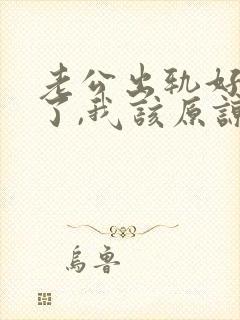 老公出轨好
了,我该原谅
乌鲁